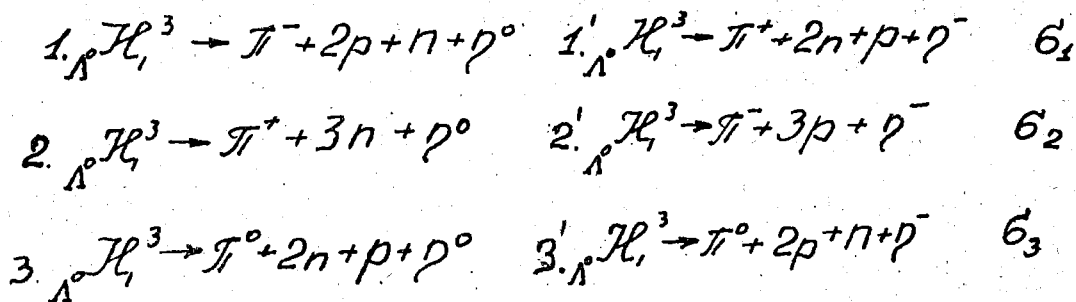 1. Λ⁰H₁³ → π⁻ + 2p + n + η⁰ 1'. Λ⁰H₁³ → π⁺ + 2n + p + η⁻ σ₁
2. Λ⁰H₁³ → π⁺ + 3n + η⁰ 2'. Λ⁰H₁³ → π⁻ + 3p + η⁻ σ₂
3. Λ⁰H₁³ → π⁰ + 2n + p + η⁰ 3'. Λ⁰H₁³ → π⁰ + 2p + n + η⁻ σ₃